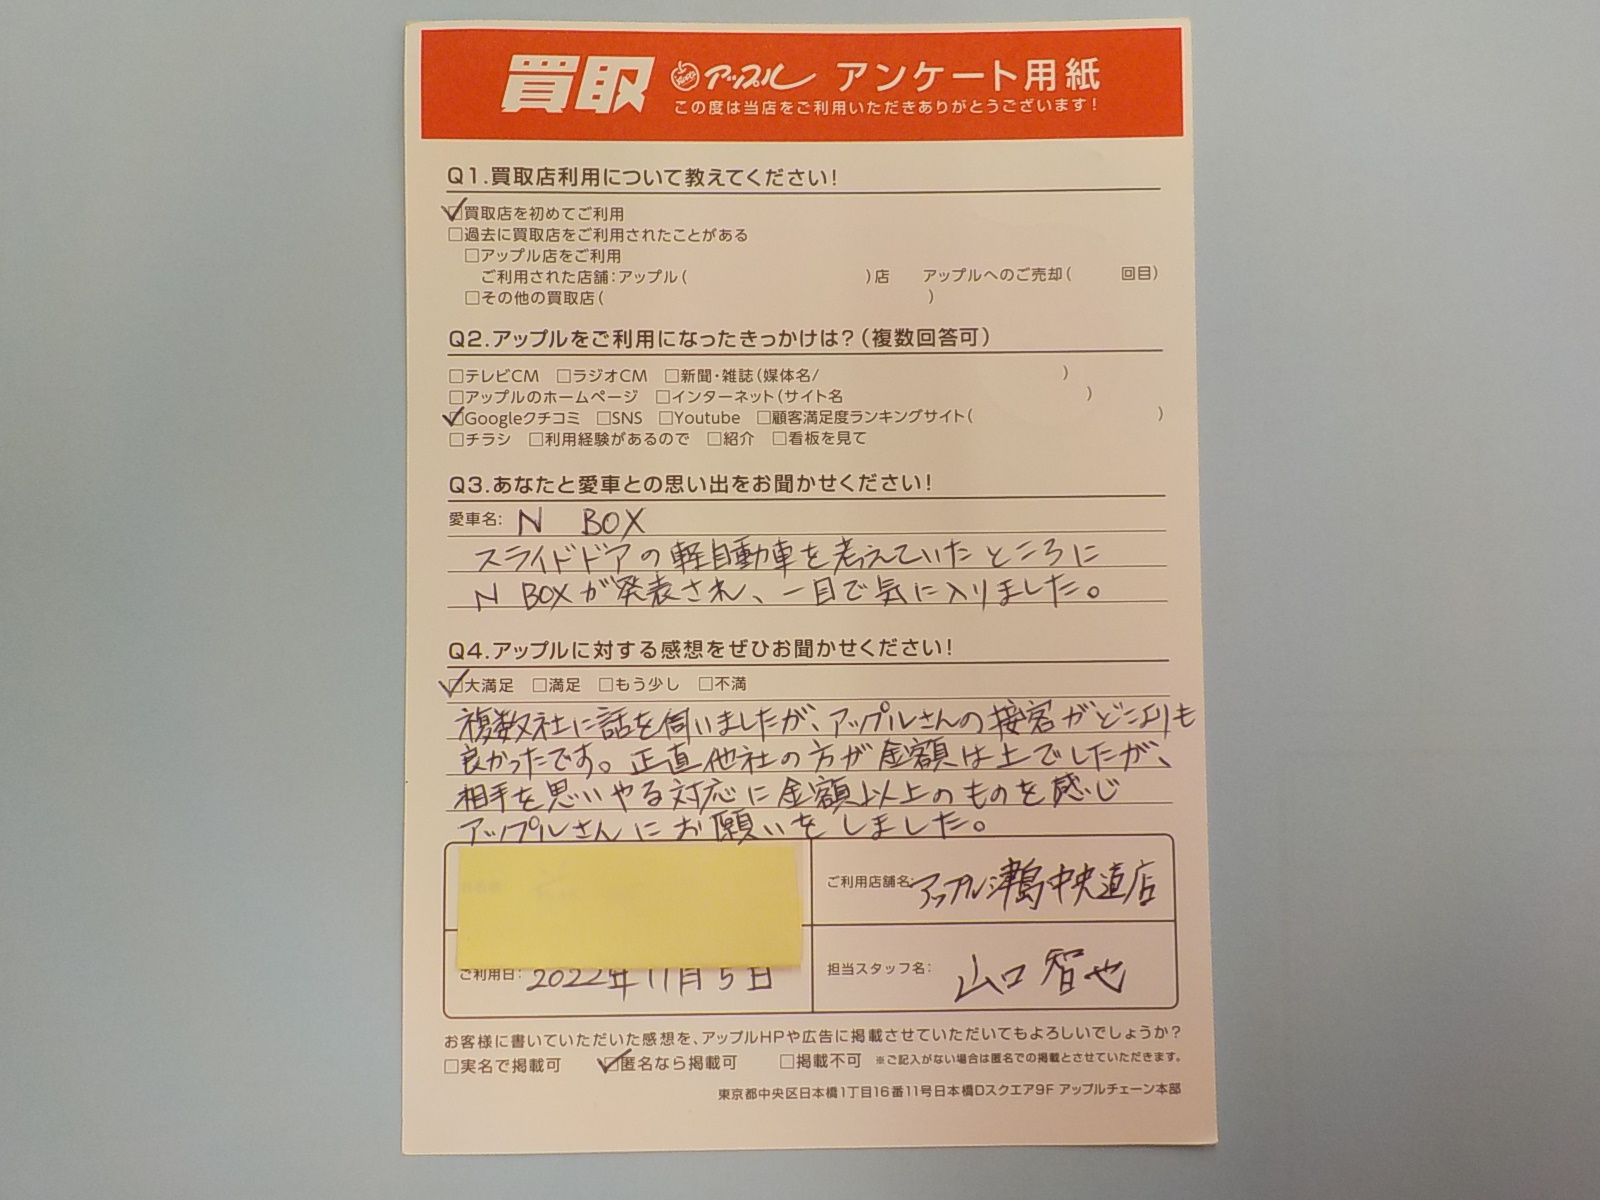 買取 アップル アンケート用紙
この度は当店をご利用いただきありがとうございます!
Q1.買取店利用について教えてください!
□買取店を初めてご利用
□過去に買取店をご利用されたことがある
□アップル店をご利用
ご利用された店舗:アップル( )店 アップルへのご売却( 回目)
□その他の買取店( )
Q2.アップルをご利用になったきっかけは?(複数回答可)
□テレビCM □ラジオCM □新聞・雑誌(媒体名/ )
□アップルのホームページ □インターネット(サイト名 )
□Googleクチコミ □SNS □Youtube □顧客満足度ランキングサイト( )
□チラシ □利用経験があるので □紹介 □看板を見て
Q3.あなたと愛車との思い出をお聞かせください!
愛車名: N BOX
スライドドアの軽自動車を考えていたところに
N BOXが発表され、一目で気に入りました。
Q4.アップルに対する感想をぜひお聞かせください!
□大満足 □満足 □もう少し □不満
複数社に話を伺いましたが、アップルさんの接客がどこよりも
良かったです。正直他社の方が金額は上でしたが、
相手を思いやる対応に金額以上のものを感じ
アップルさんにお願いをしました。
ご利用店舗名: アップル津島中央道店
ご利用日: 2022年11月5日
担当スタッフ名: 山口 智也
お客様に書いていただいた感想を、アップルHPや広告に掲載させていただいてもよろしいでしょうか?
□実名で掲載可 □匿名なら掲載可 □掲載不可 ※ご記入がない場合は匿名での掲載とさせていただきます。
東京都中央区日本橋1丁目16番11号日本橋Dスクエア9F アップルチェーン本部